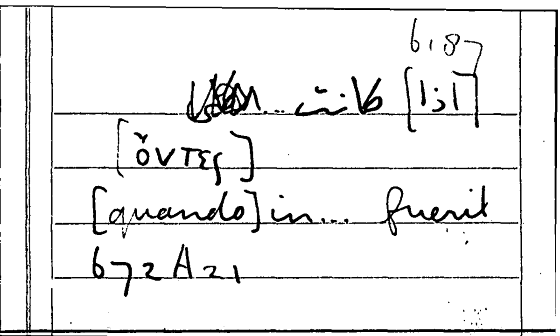 6.87
[اذا] كانت...
[ὄντες]
[quando] in... fuerit
672A21